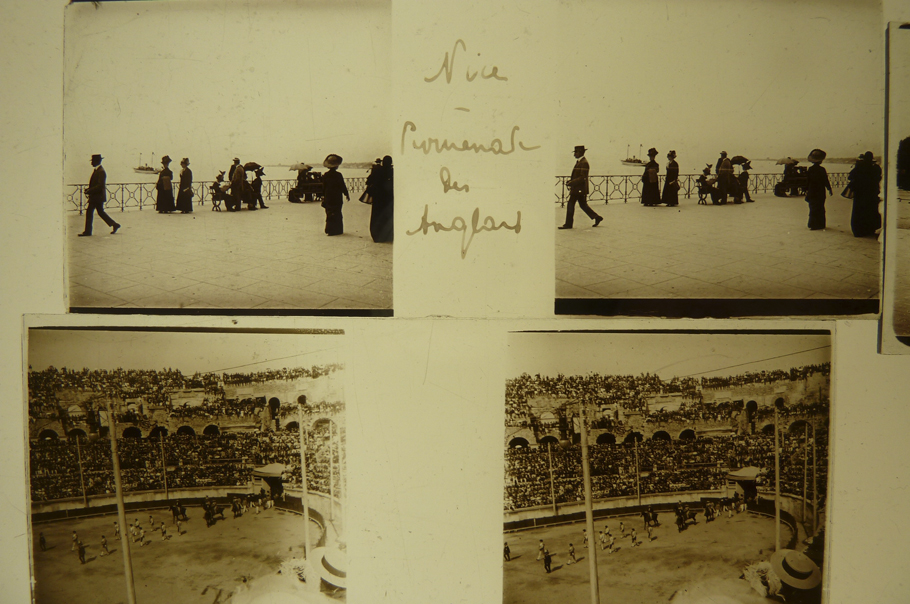 Nice
-
Promenade
des
Anglais